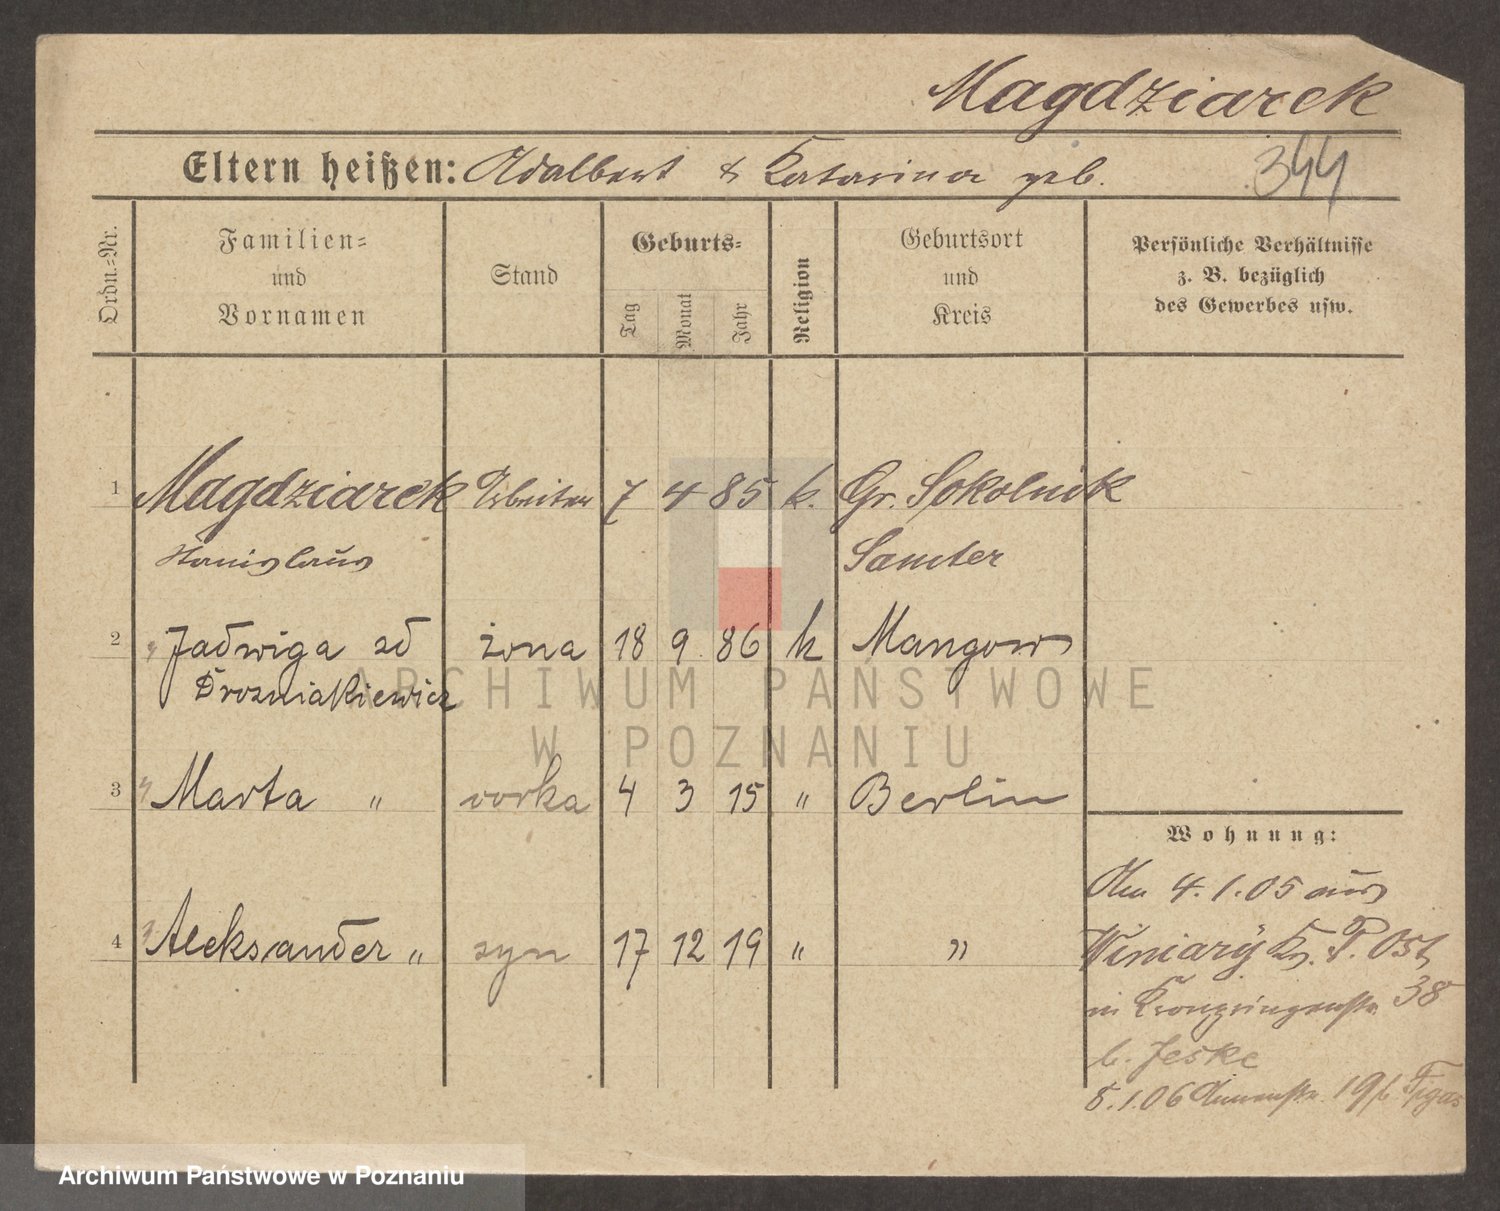 Magdziarek
Eltern heißen: Adalbert & Katarina geb. 344
Ordn.-Nr.
Familien-
und
Vornamen
Stand
Geburts-
Tag
Monat
Jahr
Religion
Geburtsort
und
Kreis
Persönliche Verhältnisse
z. B. bezüglich
des Gewerbes usw.
1 Magdziarek Arbeiter 7 4 85 k. Gr. Sokolnik
Stanislaus Samter
2 " Jadwiga zd żona 18 9 86 k Mangow
Drozniakiewicz
3 " Marta " corka 4 3 15 " Berlin
Wohnung:
Am 4.1.05 aus
4 " Aleksander " syn 17 12 19 " "
Winiary Kr. P. Ost
in Kronprinzenstr. 38
b. Jeske
5.1.06 19 b Figas
ARCHIWUM PAŃSTWOWE
W POZNANIU
Archiwum Państwowe w Poznaniu